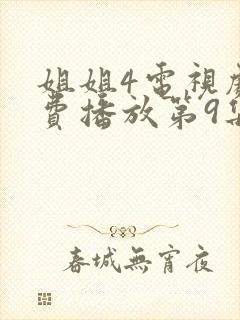 姐姐4電視
費播放第9集
春城無宵夜